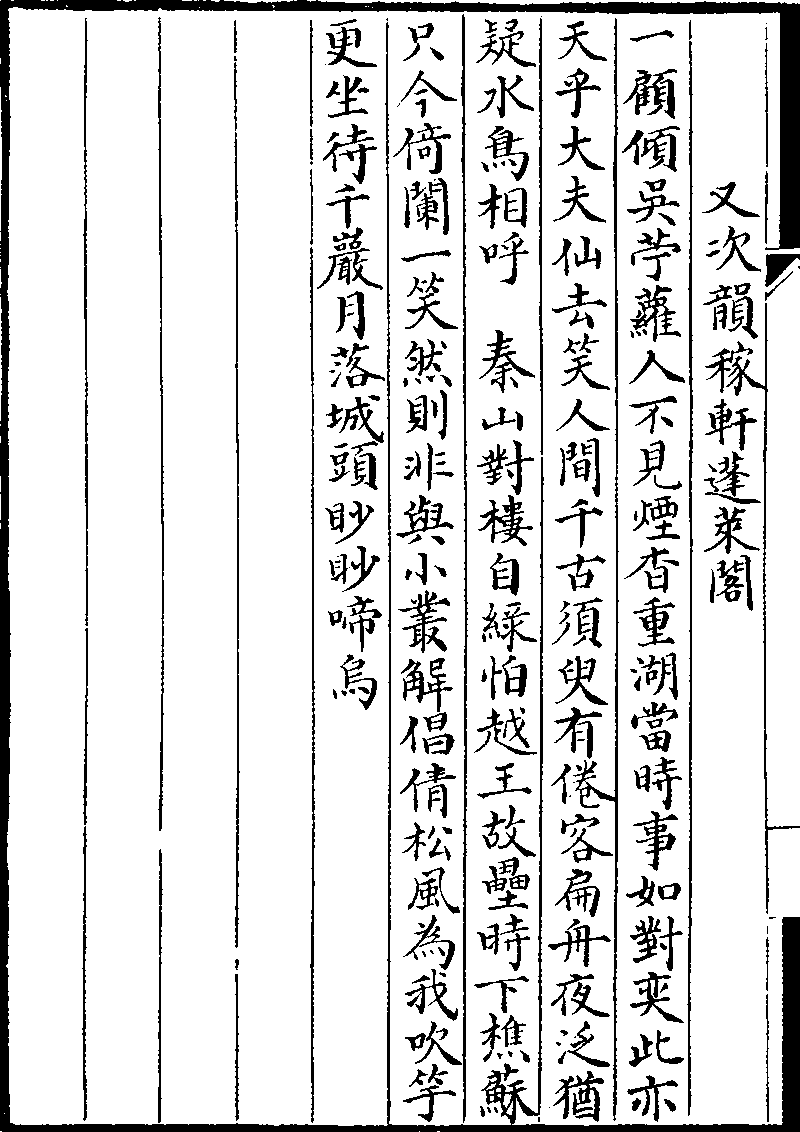 又次韻稼軒蓬萊閣
一顧傾吳苧蘿人不見煙杳重湖當時事如對奕此亦
天乎大夫仙去笑人間千古須臾有倦客扁舟夜泛猶
疑水鳥相呼　秦山對樓自綠怕越王故壘時下樵蘇
只今倚闌一笑然則非與小叢解倡倩松風為我吹竽
更坐待千巖月落城頭眇眇啼烏